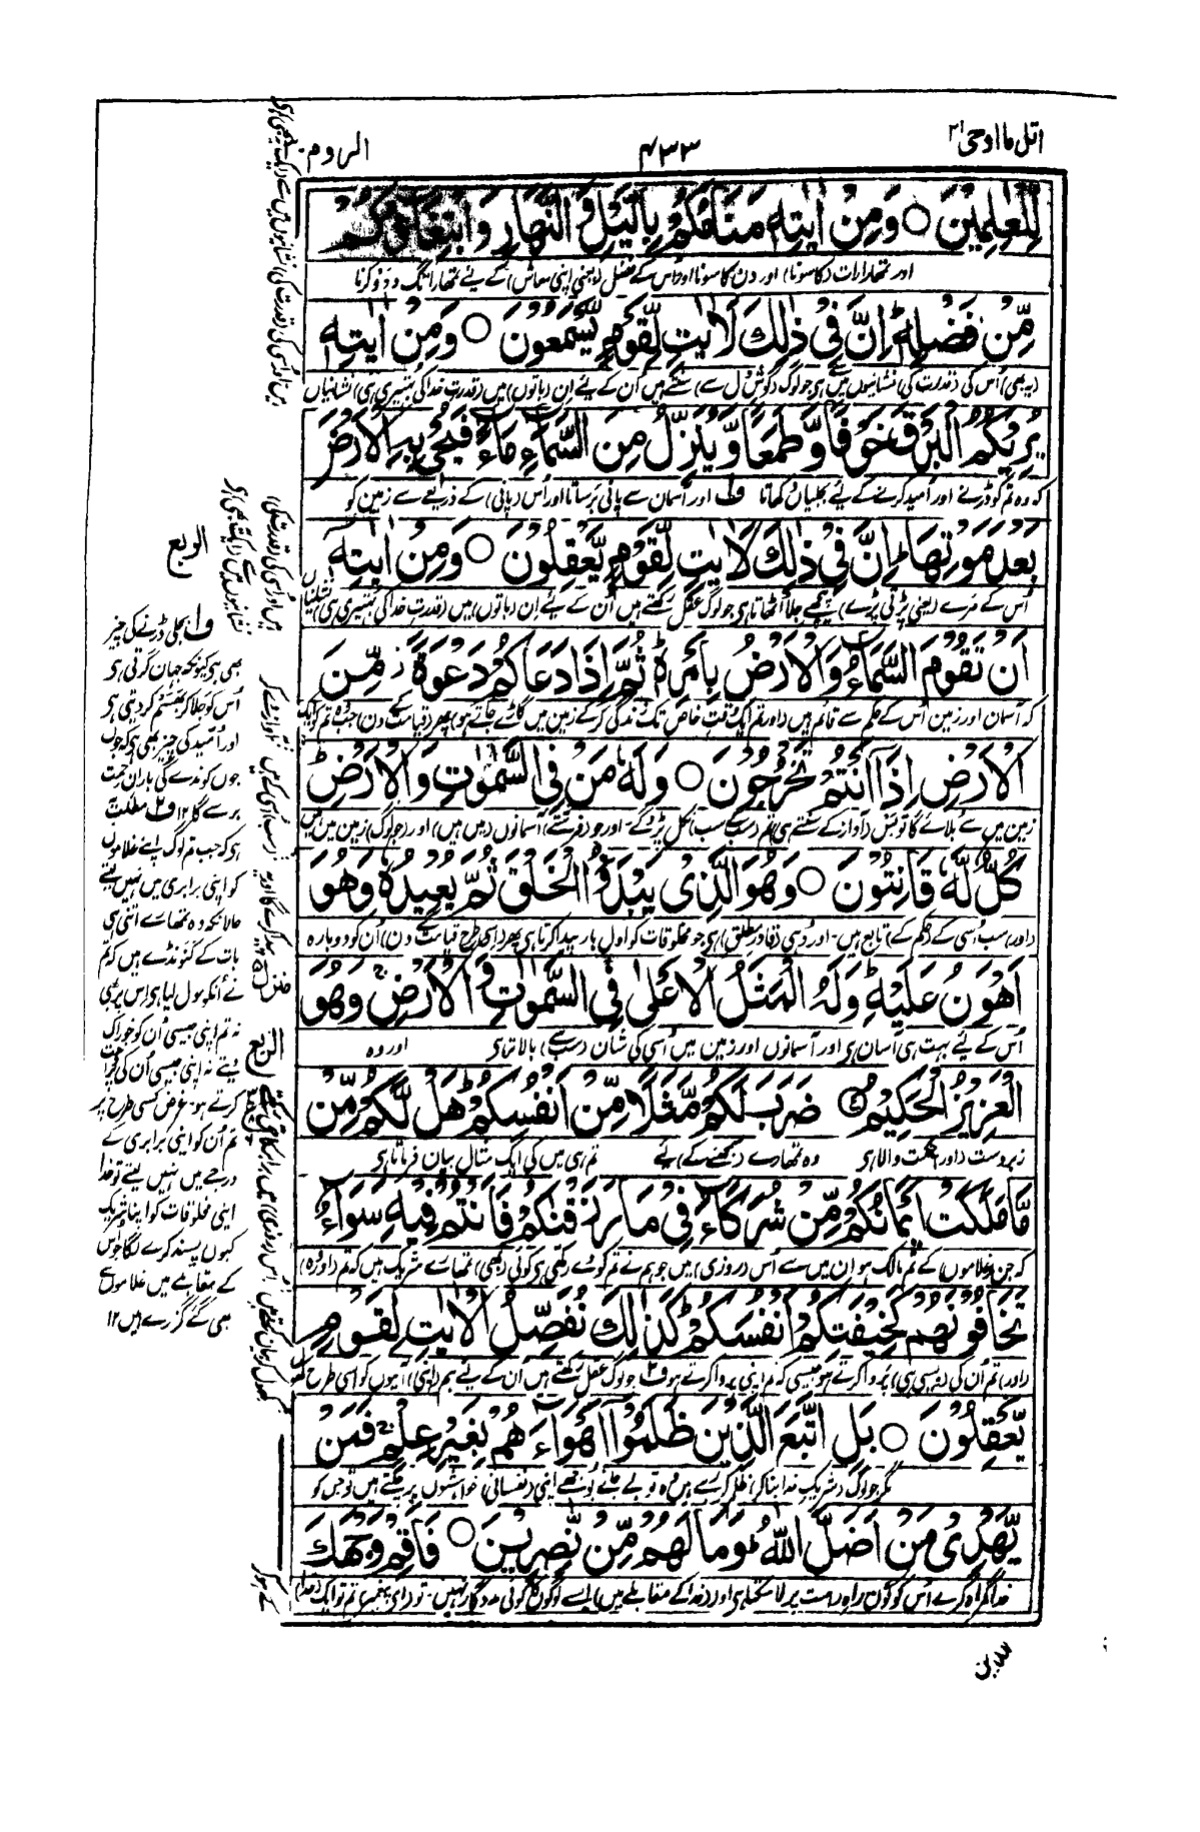 اتل ما اوحی ۲۱
۴۳۳
الروم ۳۰
لِّلْعٰلِمِيْنَ ○ وَمِنْ اٰيٰتِهٖ مَنَامُكُمْ بِالَّيْلِ وَالنَّهَارِ وَابْتِغَآؤُكُمْ
اور تمھارا رات (کا سونا) اور دن کا سونا اور اُس کے فضل (یعنی اپنی معاش) کے لیے تمھارا تگ و دَو کرنا
مِّنْ فَضْلِهٖ ؕ اِنَّ فِيْ ذٰلِكَ لَاٰيٰتٍ لِّقَوْمٍ يَّسْمَعُوْنَ ○ وَمِنْ اٰيٰتِهٖ
(یہ بھی) اُس کی (قدرت کی) نشانیوں میں ہی جو لوگ (گوش دل سے) سنتے ہیں اُن کے لیے اِن (باتوں) میں (قدرت خدا کی بہتیری ہی) نشانیاں
يُرِيْكُمُ الْبَرْقَ خَوْفًا وَّطَمَعًا وَّيُنَزِّلُ مِنَ السَّمَآءِ مَآءً فَيُحْيٖ بِهِ الْاَرْضَ
کہ وہ تم کو ڈرنے اور اُمید کرنے کے لیے بجلیاں دکھاتا ف۱ اور آسمان سے پانی برساتا اور اُس (پانی) کے ذریعے سے زمین کو
بَعْدَ مَوْتِهَا ؕ اِنَّ فِيْ ذٰلِكَ لَاٰيٰتٍ لِّقَوْمٍ يَّعْقِلُوْنَ ○ وَمِنْ اٰيٰتِهٖ
اُس کے مرے (یعنی پڑتی پڑے) پیچھے جلا اُٹھاتا ہی جو لوگ عقل رکھتے ہیں اُن کے لیے اِن (باتوں) میں (قدرت خدا کی بہتیری ہی) نشانیاں
اَنْ تَقُوْمَ السَّمَآءُ وَالْاَرْضُ بِاَمْرِهٖ ؕ ثُمَّ اِذَا دَعَاكُمْ دَعْوَةً ۖ مِّنَ
کہ آسمان اور زمین اُس کے حکم سے قائم ہیں (اور تم ایک وقت خاص تک زندگی کرکے زمین میں گاڑے جاتے ہو) پھر (قیامت کے دن) جب وہ تم کو ایک
الْاَرْضِ اِذَآ اَنْتُمْ تَخْرُجُوْنَ ○ وَلَهٗ مَنْ فِي السَّمٰوٰتِ وَالْاَرْضِ ؕ
زمین میں سے بلائے گا تو بس (آواز کے سنتے ہی) تم (سب کے سب) نکل پڑو گے۔ اور جو (فرشتے) آسمانوں (میں ہیں) اور (جو لوگ) زمین میں ہیں
كُلٌّ لَّهٗ قَانِتُوْنَ ○ وَهُوَ الَّذِيْ يَبْدَؤُا الْخَلْقَ ثُمَّ يُعِيْدُهٗ وَهُوَ
(اور) سب اُسی کے (حکم کے) تابع ہیں۔ اور وہی (قادر مطلق) ہی جو مخلوقات کو اول بار پیدا کرتا ہی پھر (اسی طرح قیامت کے دن) اُن کو دوبارہ
اَهْوَنُ عَلَيْهِ ؕ وَلَهُ الْمَثَلُ الْاَعْلٰى فِي السَّمٰوٰتِ وَالْاَرْضِ ۚ وَهُوَ
اُس کے لیے بہت ہی آسان ہی اور آسمانوں اور زمین میں اُسی کی شان (سب سے) بالاتر ہی اور وہ
الْعَزِيْزُ الْحَكِيْمُ ضَرَبَ لَكُمْ مَّثَلًا مِّنْ اَنْفُسِكُمْ ؕ هَلْ لَّكُمْ مِّنْ
زبردست (اور) حکمت والا ہی وہ تمھارے (سمجھنے کے) لیے تم ہی میں کی ایک مثال بیان فرماتا ہی
مَّا مَلَكَتْ اَيْمَانُكُمْ مِّنْ شُرَكَآءَ فِيْ مَا رَزَقْنٰكُمْ فَاَنْتُمْ فِيْهِ سَوَآءٌ
کہ جن (غلاموں) کے تم مالک ہو ان میں سے اُس (روزی) میں جو ہم نے تم کو دے رکھی ہی کوئی (بھی) تمھارے شریک ہیں کہ تم (اور وہ)
تَخَافُوْنَهُمْ كَخِيْفَتِكُمْ اَنْفُسَكُمْ ؕ كَذٰلِكَ نُفَصِّلُ الْاٰيٰتِ لِقَوْمٍ
(اور) تم اُن کی (ویسی ہی) پروا کرتے ہو جیسی کہ تم اپنی پروا کرتے ہو ف۲ جو لوگ عقل رکھتے ہیں اُن کے لیے ہم (اپنی) آیتوں کو اسی طرح
يَّعْقِلُوْنَ ○ بَلِ اتَّبَعَ الَّذِيْنَ ظَلَمُوْٓا اَهْوَآءَهُمْ بِغَيْرِ عِلْمٍ ۚ فَمَنْ
مگر جو لوگ (شریک خدا بناکر) ظلم کر رہے ہیں وہ تو بے جانے بوجھے اپنی (نفسانی) خواہشوں پر چلتے ہیں تو جس کو
يَّهْدِيْ مَنْ اَضَلَّ اللّٰهُ ؕ وَمَا لَهُمْ مِّنْ نّٰصِرِيْنَ ○ فَاَقِمْ وَجْهَكَ
خدا گمراہ کرے اُس کو کون راہ راست پر لا سکتا ہی اور (خدا کے مقابلے میں) ایسے لوگوں کا کوئی مددگار نہیں۔ تو (ای پیغمبر) تم تو ایک (خدا)
للدین
الربع
ف۱ بجلی ڈرنے کی چیز
بھی ہی کیونکہ جہاں گرتی ہی
اُس کو جلا کر بھسم کر دیتی ہی
اور اُمید کی چیز بھی ہی کہ جوں
جوں کوندے گی باران رحمت
برسے گا ۱۲ ف۲ مطلب یہ
ہی کہ جب تم لوگ اپنے غلاموں
کو اپنی برابری میں نہیں لیتے
حالانکہ وہ تمھارے اتنی ہی
بات کے لونڈے ہیں کہ تم
نے اُنکو مول لیا ہی اِس پر بھی
نہ تم اپنی جیسی اُن کو خوراک
دیتے نہ اپنی جیسی اُن کی
کرتے ہو۔ غرض کسی طرح پر
تم اُن کو اپنی برابری کے
درجے میں نہیں لیتے تو خدا
اپنی مخلوقات کو اپنا شریک
کیوں پسند کرنے لگا جو اُس
کے مقابلے میں غلاموں سے
بھی گئے گزرے ہیں ۱۲
منزل ۵
الربع